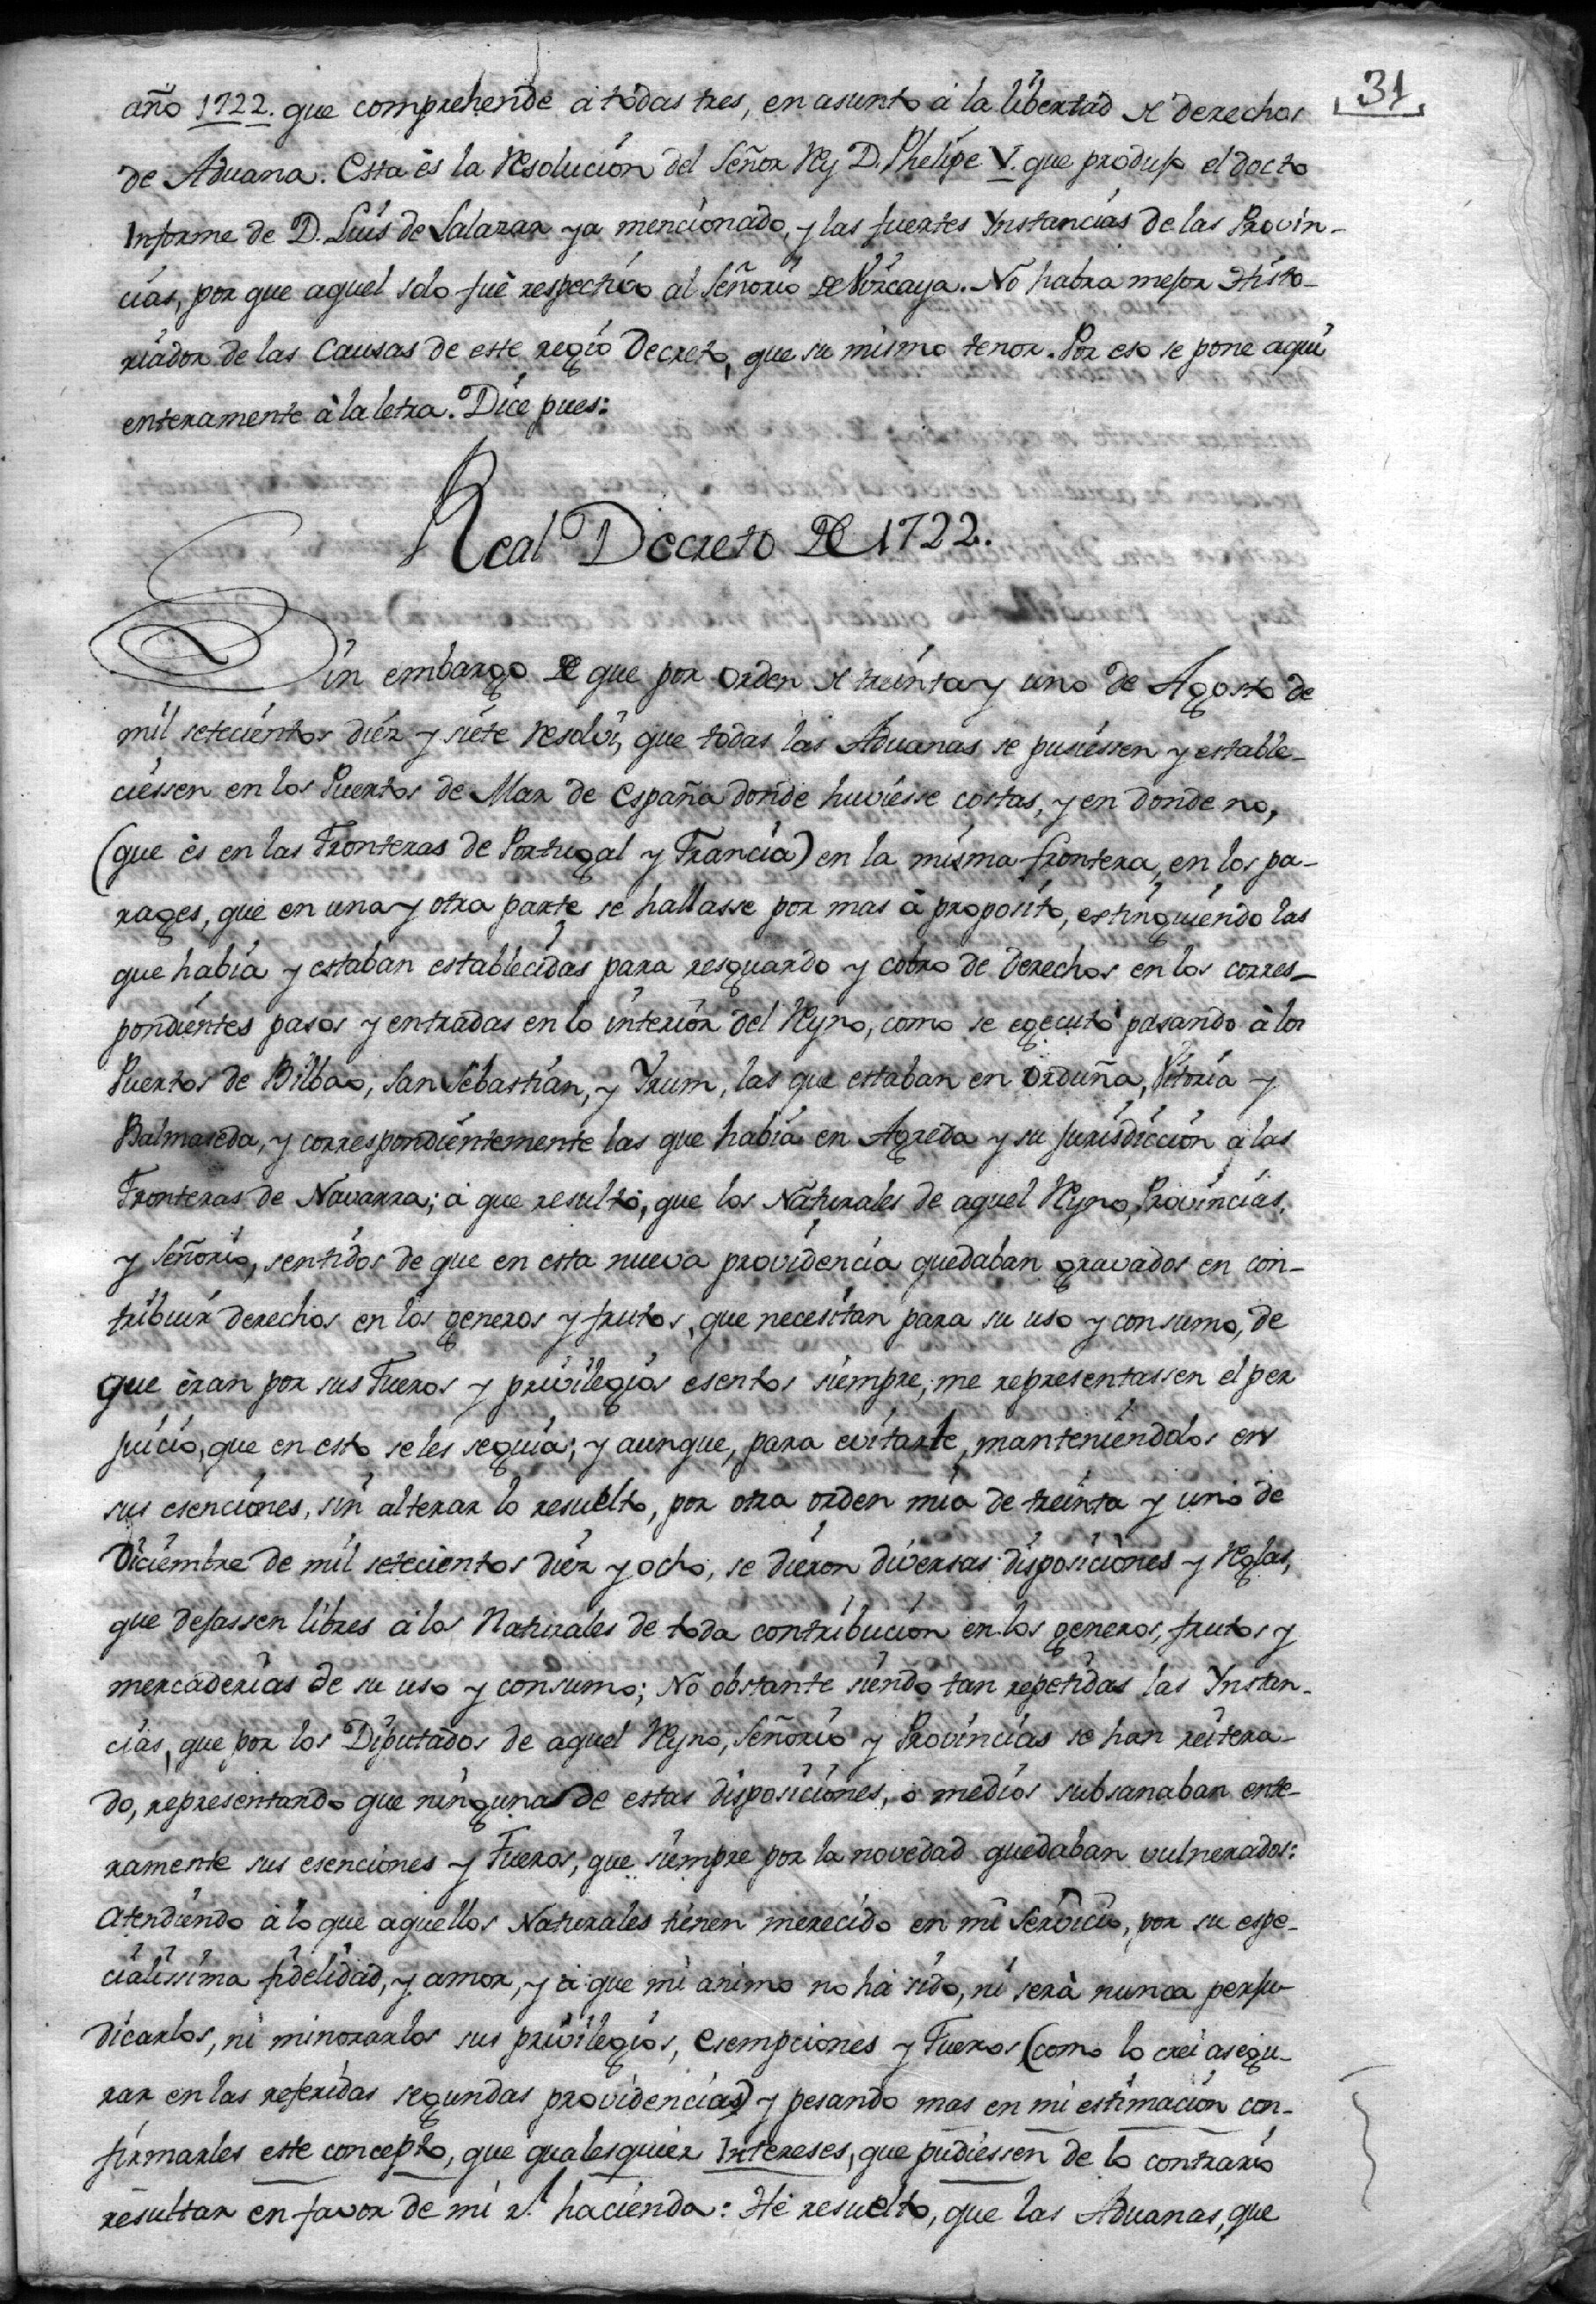 31
año 1722. que comprehende à todas tres, en asunto à la libertad de derechos
de Aduana. Esta ès la resolucion del Señor Rey D. Phelipe V. que produjo el docto
Informe de D. Luis de Salazar ya mencionado, y las fuertes Ynstancias de las Provin-
cias, por que aquel solo fuè respectivo al Señorio de Vizcaya. No habra mejor Histo-
riador de las Causas de este regio Decreto, que su mismo tenor. Por eso se pone aqui
enteramente à la letra. Dice pues:
Real Decreto de 1722.
Sin embargo de que por orden de treinta y uno de Agosto de
mil setecientos diez y siete resolvi, que todas las Aduanas se pusiessen y estable-
ciessen en los Puertos de Mar de España donde huviesse costas, y en donde no,
(que ès en las Fronteras de Portugal y Francia) en la misma frontera, en los pa-
rages, que en una y otra parte se hallasse por mas à proposito, extinguiendo las
que habia y estaban establecidas para resguardo y cobro de derechos en los corres-
pondientes pasos y entradas en lo interior del Reyno, como se egecutò pasando à los
Puertos de Bilbao, San Sebastian, y Yrum, las que estaban en Orduña, Vitoria y
Balmaseda, y correspondientemente las que habia en Agreda y su jurisdiccion à las
Fronteras de Navarra; à que resultò, que los Naturales de aquel Reyno, Provincias,
y Señorio, sentidos de que en esta nueva providencia quedaban gravados en con-
tribuir derechos en los generos y frutos, que necesitan para su uso y consumo, de
que èran por sus Fueros y privilegios esentos siempre, me representassen el per
juicio, que en esto se les seguia; y aunque, para evitarle, manteniendolos en
sus esenciones, sin alterar lo resuelto, por otra orden mia de treinta y uno de
Diciembre de mil setecientos diez y ocho, se dieron diversas disposiciones y reglas,
que dejassen libres à los Naturales de toda contribucion en los generos, frutos y
mercaderias de su uso y consumo; No obstante siendo tan repetidas las Ynstan-
cias, que por los Diputados de aquel Reyno, Señorio y Provincias se han reitera-
do, representando que ninguna de estas disposiciones, o medios subsanaban ente-
ramente sus esenciones y Fueros, que siempre por la novedad quedaban vulnerados:
Atendiendo à lo que aquellos Naturales tienen merecido en mi Servicio, por su espe-
cialissima fidelidad, y amor, y à que mi animo no ha sido, ni serà nunca perju-
dicarlos, ni minorarlos sus privilegios, esempciones y Fueros (como lo crei asegu-
rar en las referidas segundas providencias) y pesando mas en mi estimacion con-
firmarles este concepto, que qualesquier Intereses, que pudiessen de lo contrario
resultar en favor de mi rl. hacienda: Hè resuelto, que las Aduanas, que